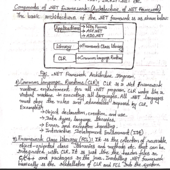 Components of .NET Framework (Architecture of .NET Framework)
The basic architecture of the .NET framework is as shown below:
Applications
Web Forms
ADO.NET
Libraries
Framework Class Library
CLR
Common Language Runtime
Fig. .NET Framework Architecture Diagram
1) Common Language Runtime (CLR): CLR is a .NET framework
runtime environment for all .NET program. CLR works like a
virtual machine in executing all languages. All .NET languages
must obey the rules and standards imposed by CLR.
Examples:
Object declaration, creation, and use.
Data types, language libraries.
Error and exception handling
Interactive Development Environment (IDE)
2) Framework Class Library (FCL): It is the collection of reusable,
object-oriented class libraries and methods etc that can be
integrated with CLR. It is just like the header files in
C/C++ and packages in the java. Installing .NET framework
basically is the installation of CLR and FCL into the system